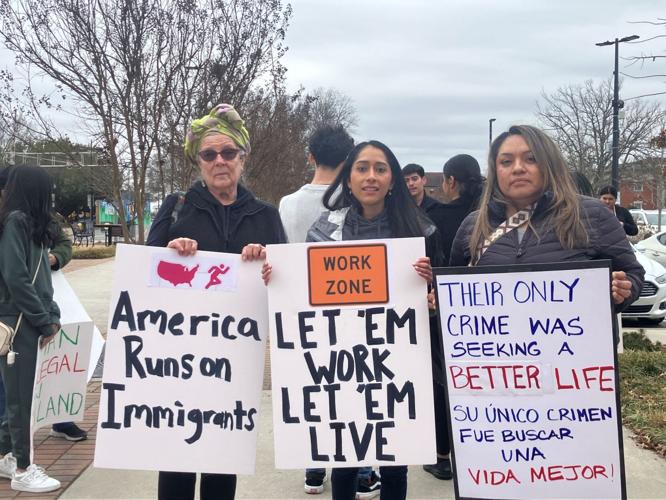 America
Runs on
Immigrants
WORK
ZONE
LET 'EM
WORK
LET 'EM
LIVE
THEIR ONLY
CRIME WAS
SEEKING A
BETTER LIFE
SU ÚNICO CRIMEN
FUE BUSCAR
UNA
VIDA MEJOR!
LEGAL
LAND